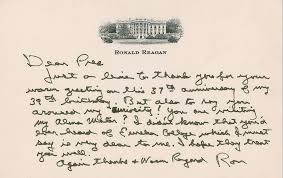 RONALD REAGAN
Dear Pree
Just a line to thank you for your
warm greeting on this 37th anniversary of my
39th birthday. But also to say you
aroused my curiosity! You are visiting
my Alma Mater? I didn't know that you'd
ever heard of Eureka College which I must
say is very dear to me. I hope they treat
you well.
Again thanks & Warm Regard Ron